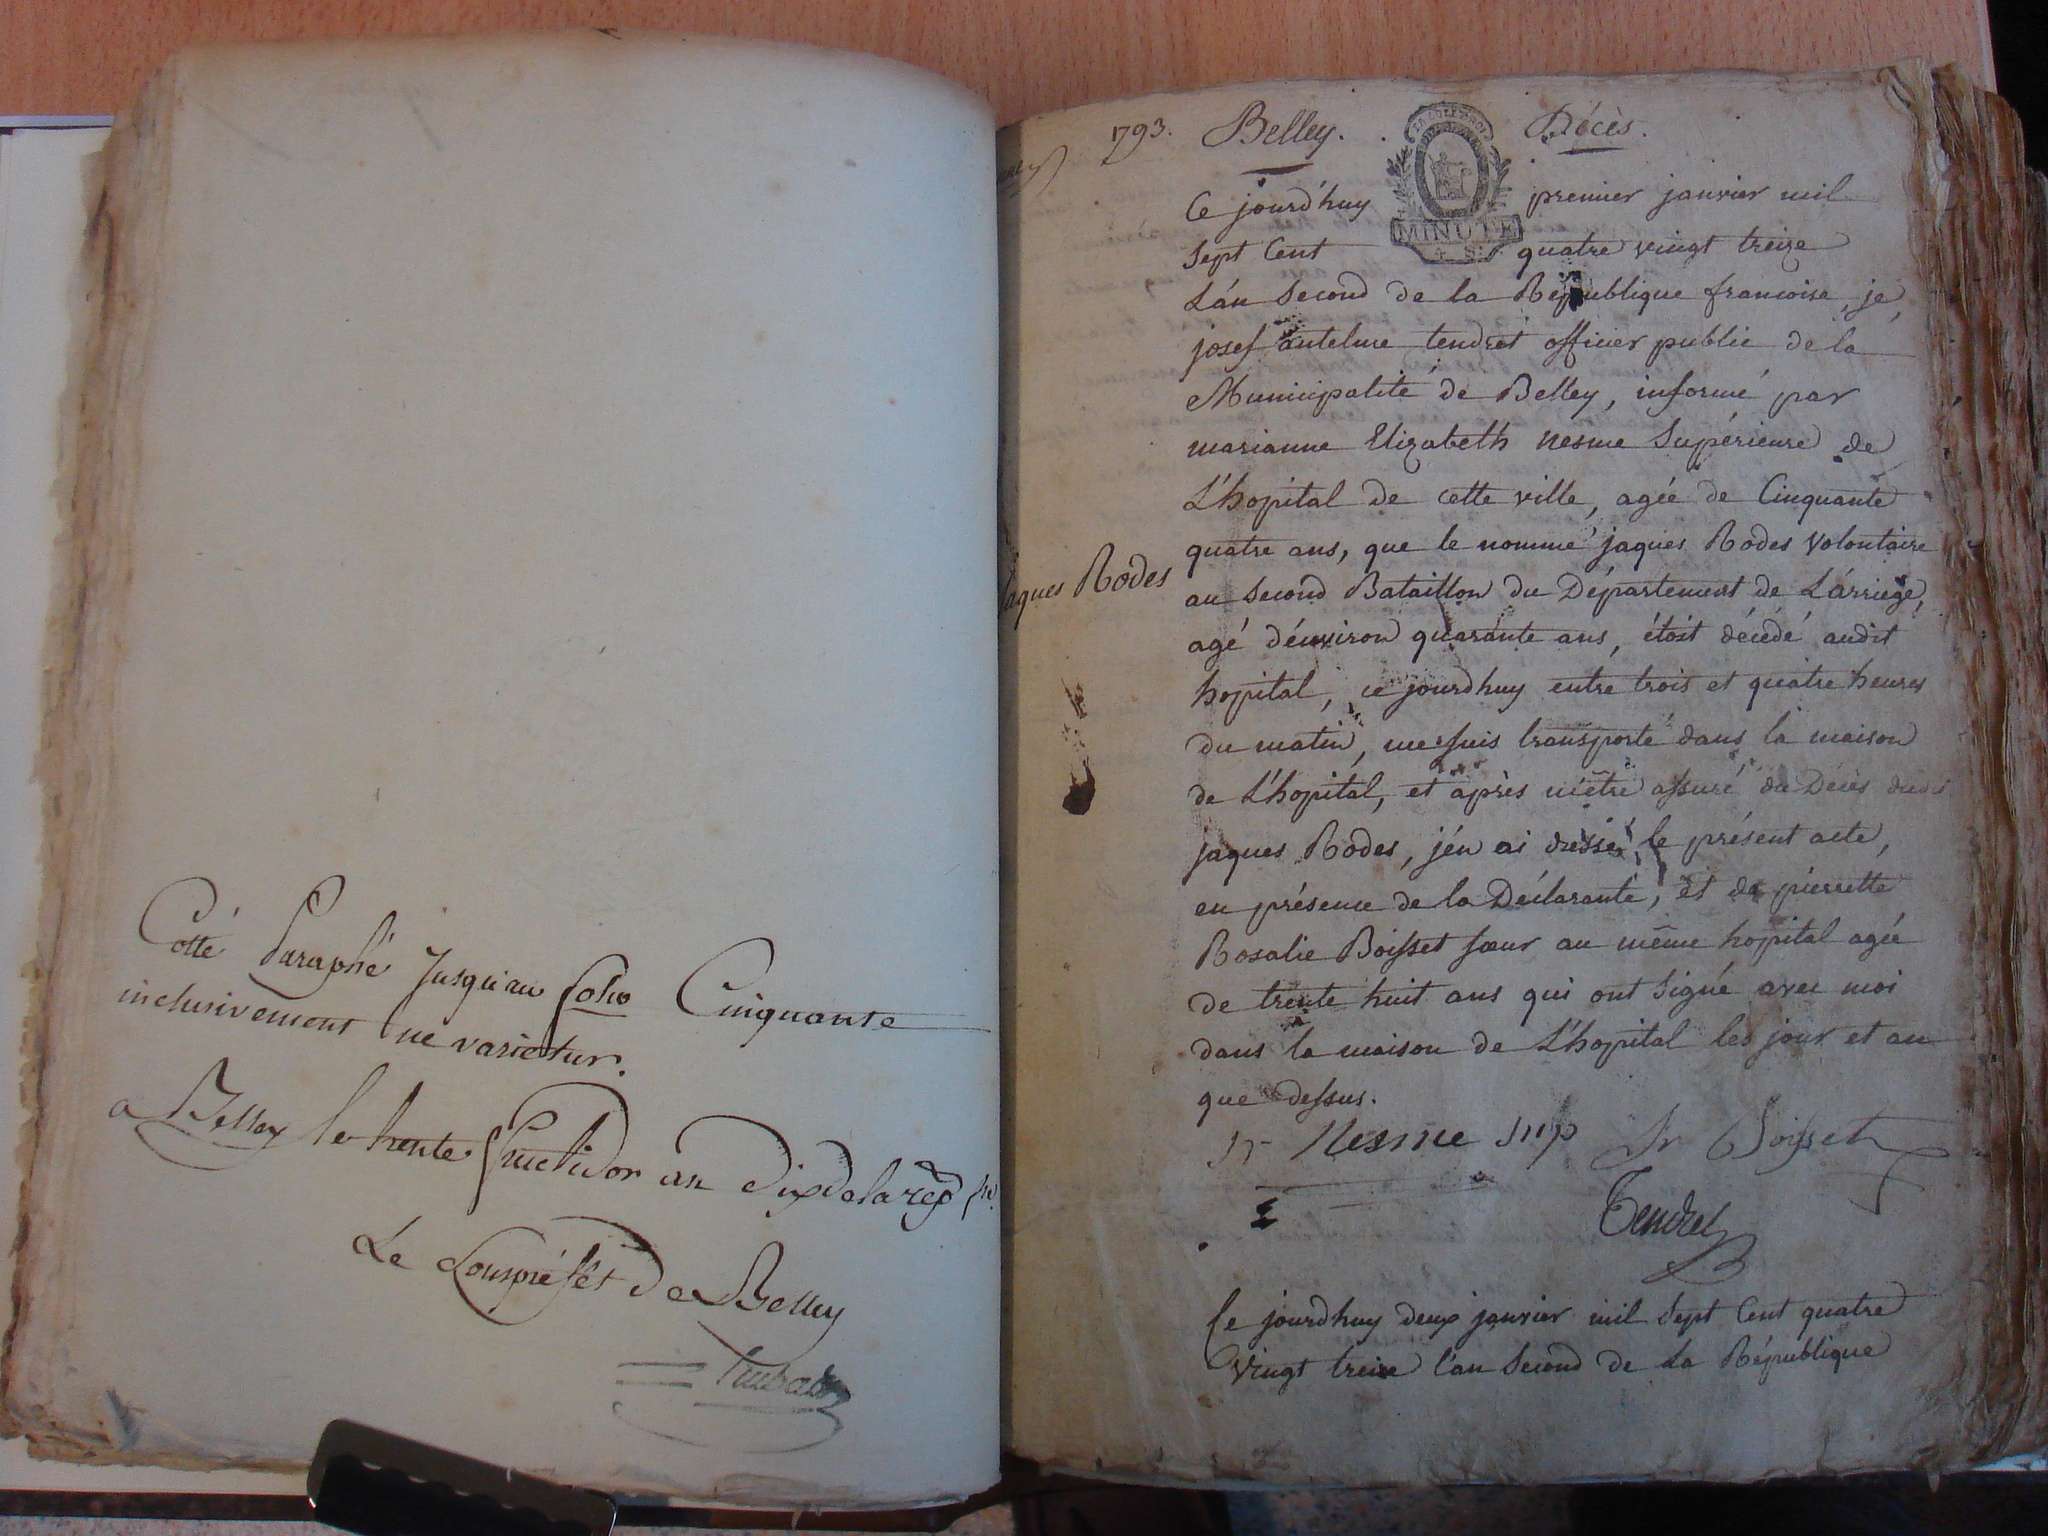 Cotté Paraphé jusqu'au folio Cinquante
inclusivement ne varietur.
a Belley le trente fructidor an dix de la rép. fse.
Le Souspréfet de Belley
1793. Belley. Décès.
MINUTE
4 S.
Ce jourd'huy premier janvier mil
sept Cent quatre vingt treize
L'an second de la République francoise, je,
josef antelme tendret officier public de la
Municipalité de Belley, informé par
marianne Elizabeth nesme Supérieure de
L'hopital de cette ville, agée de Cinquante
quatre ans, que le nommé jaques Rodes volontaire
au second Bataillon du Département de L'arriège,
agé d'environ quarante ans, étoit décédé audit
hopital, ce jourdhuy entre trois et quatre heures
du matin, me suis transporté dans la maison
de L'hopital, et après m'être assuré du Décès dudit
jaques Rodes, j'en ai dressé le présent acte,
en présence de la Déclarante, et de pierrette
Rosalie Boisset sœur au même hopital agée
de trente huit ans qui ont signé avec moi
dans la maison de L'hopital les jour et an
que dessus.
jaques Rodes
Sr Nesme sup Sr Boisset
Tendret
Ce jourdhuy deux janvier mil sept Cent quatre
vingt treize l'an second de la République